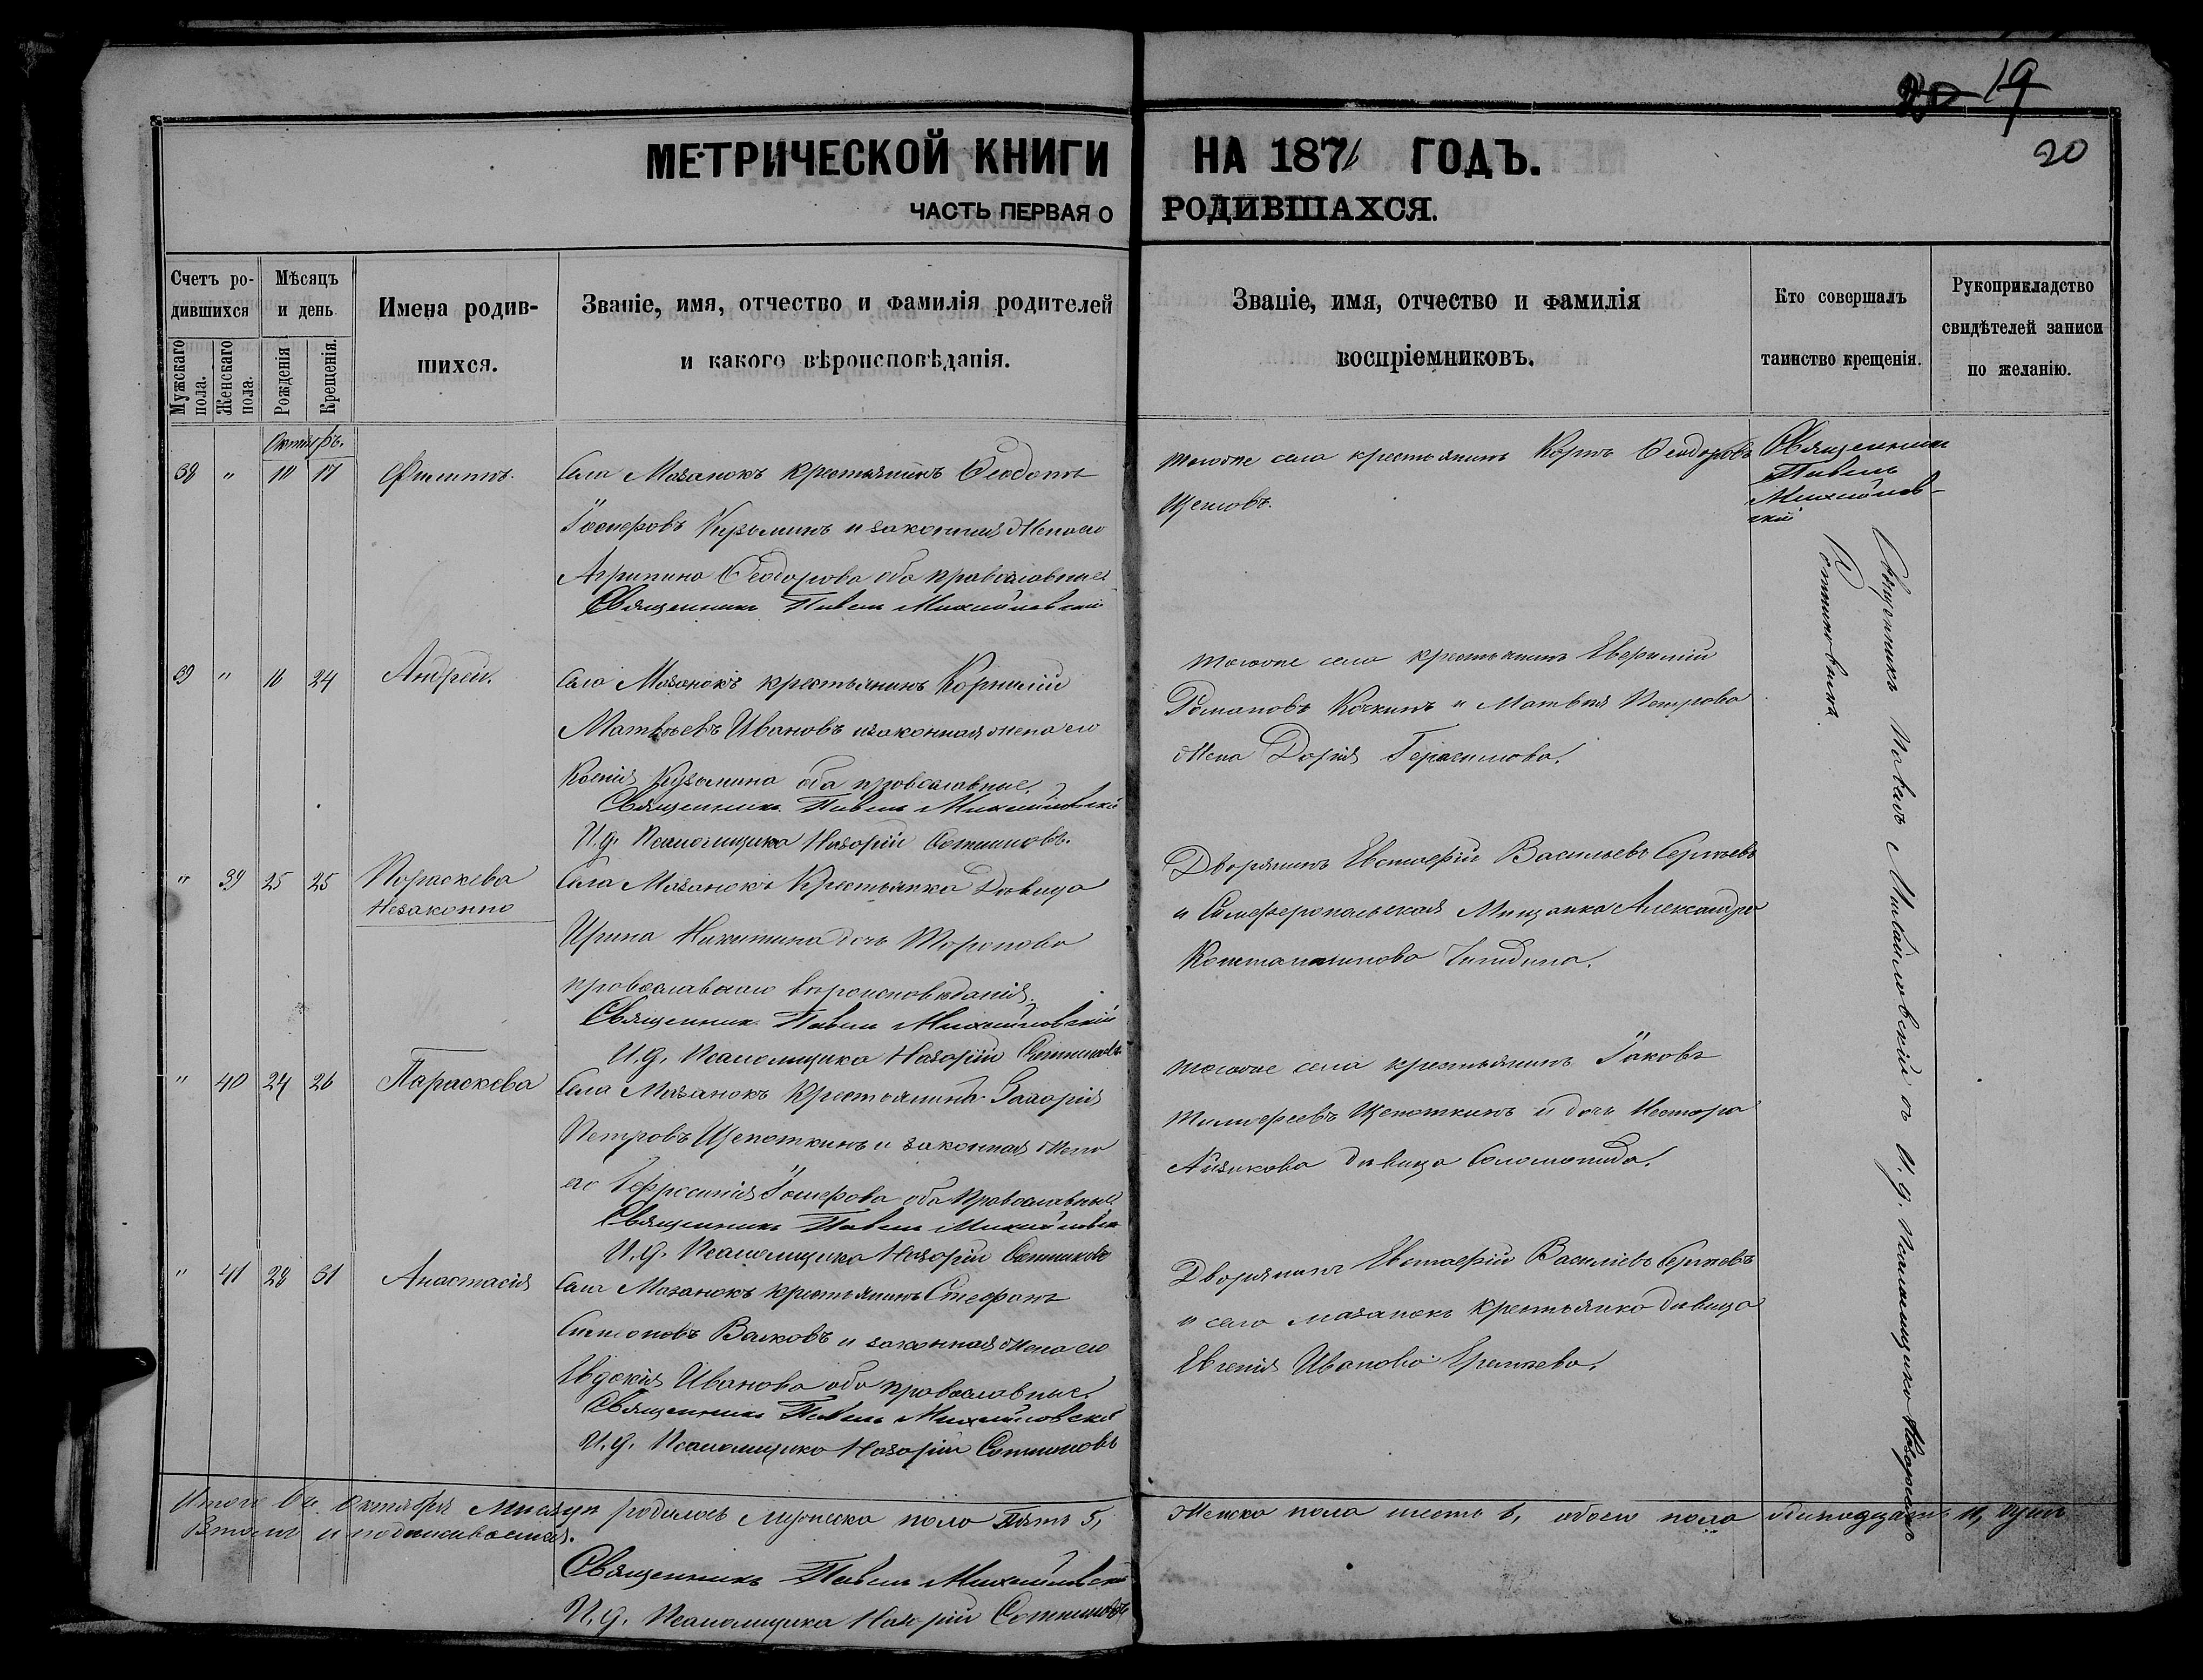 19
20
МЕТРИЧЕСКОЙ КНИГИ НА 1871 ГОДЪ.
ЧАСТЬ ПЕРВАЯ О РОДИВШАХСЯ.
Счетъ ро-
дившихся
Мужскаго
пола.
Женскаго
пола.
Мѣсяцъ
и день
Рожденія
Крещенія.
Имена родив-
шихся.
Званіе, имя, отчество и фамилія родителей
и какого вѣроисповѣданія.
Званіе, имя, отчество и фамилія
воспріемниковъ.
Кто совершалъ
таинство крещенія.
Рукоприкладство
свидѣтелей записи
по желанію.
Октябрь.
38 " 17 Филиппъ.
Села Мазанокъ крестьянинъ Ѳеодотъ
Кузьминъ и законная жена его
Агрипина Ѳеодорова оба православные
Священникъ Павелъ Михайловскій
тогоже села крестьянинъ Ѳеодоровъ
Щегловъ.
Священникъ
Павелъ
Михайлов-
скій
39 " 24 Андрей.
Села Мазанокъ крестьянинъ Корнилій
Матвѣевъ Ивановъ и законная жена его
Ксенія Кузьмина оба православные.
Священникъ Павелъ Михайловскій
И.д. Псаломщика Назарій Сотниковъ.
тогоже села крестьянинъ
Романовъ и Матвѣя Петрова
жена Дарія Герасимова.
" 39 25 25 Параскева
Незаконно
Села Мазанокъ Крестьянка Дѣвица
Ирина Никитина дочь Торопова
православнаго вѣроисповѣданія.
Священникъ Павелъ Михайловскій
И.д. Псаломщика Назарій Сотниковъ
Дворянинъ Евстафій Васильевъ Сергѣевъ
и Симферопольская Мѣщанка Александра
Константинова
" 40 24 26 Параскева
Села Мазанокъ Крестьянинъ Захарія
Петровъ Щепоткинъ и законная жена
его Ефросинія оба Православные
Священникъ Павелъ Михайловскій
И.д. Псаломщика Назарій Сотниковъ
тогоже села крестьянинъ Іаковъ
Тимофеевъ Щепоткинъ и дочь Нестора
дѣвица Соломонида.
" 41 28 31 Анастасія
Села Мазанокъ крестьянинъ Стефанъ
Волковъ и законная жена его
Евдокія Иванова оба православные.
Священникъ Павелъ Михайловскій
И.д. Псаломщика Назарій Сотниковъ
Дворянинъ Евстафій Васильевъ Сергѣевъ
и села мазанокъ крестьянка дѣвица
Евгенія Иванова
Священникъ Павелъ Михайловскій съ И.д. Псаломщика Назаріемъ
Сотниковымъ.
Итого въ Октябрѣ Мѣсяцѣ родилось мужеска пола Пять 5, женска пола шесть 6, обоего пола одинадцать 11, душъ
Въ томъ и подписываемся.
Священникъ Павелъ Михайловскій
И.д. Псаломщика Назарій Сотниковъ